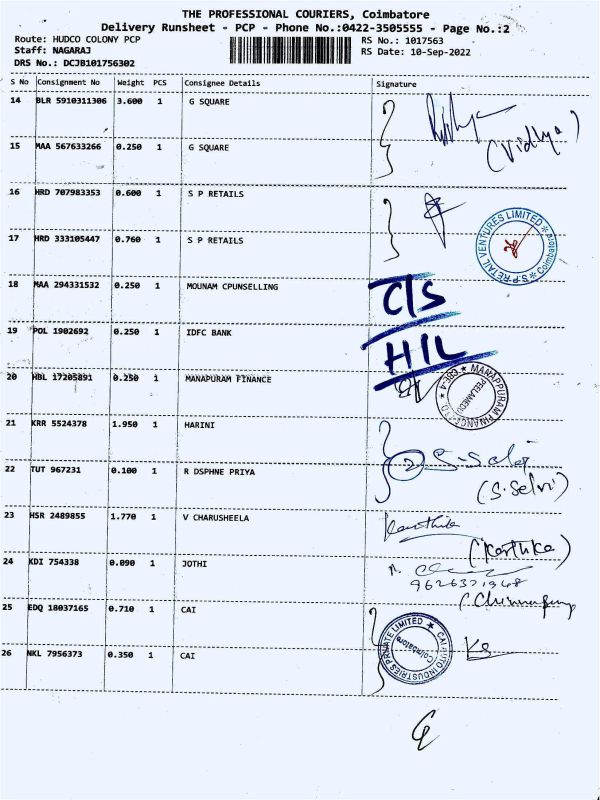 THE PROFESSIONAL COURIERS, Coimbatore
Delivery Runsheet - PCP - Phone No.:0422-3505555 - Page No.:2
Route: HUDCO COLONY PCP RS No.: 1017563
Staff: NAGARAJ RS Date: 10-Sep-2022
DRS No.: DCJB101756302
S No Consignment No Weight PCS Consignee Details Signature
14 BLR 5910311306 3.600 1 G SQUARE
(Vidhya)
15 MAA 567633266 0.250 1 G SQUARE
16 HRD 707983353 0.600 1 S P RETAILS
S.P.RETAIL VENTURES LIMITED * Coimbatore *
17 HRD 333105447 0.760 1 S P RETAILS
18 MAA 294331532 0.250 1 MOUNAM CPUNSELLING
C/S
19 POL 1902692 0.250 1 IDFC BANK
H/L
20 HBL 17205891 0.250 1 MANAPURAM FINANCE
MANAPPURAM FINANCE LTD. * CBE-4 *
PEELAMEDU
21 KRR 5524378 1.950 1 HARINI
2 S-Selvi
22 TUT 967231 0.100 1 R DSPHNE PRIYA
(S.Selvi)
23 HSR 2489855 1.770 1 V CHARUSHEELA
Karthika
(Karthika)
24 KDI 754338 0.090 1 JOTHI
25 EDQ 18037165 0.710 1 CAI
CAI AUTO INDUSTRIES PRIVATE LIMITED *
Coimbatore
26 NKL 7956373 0.350 1 CAI